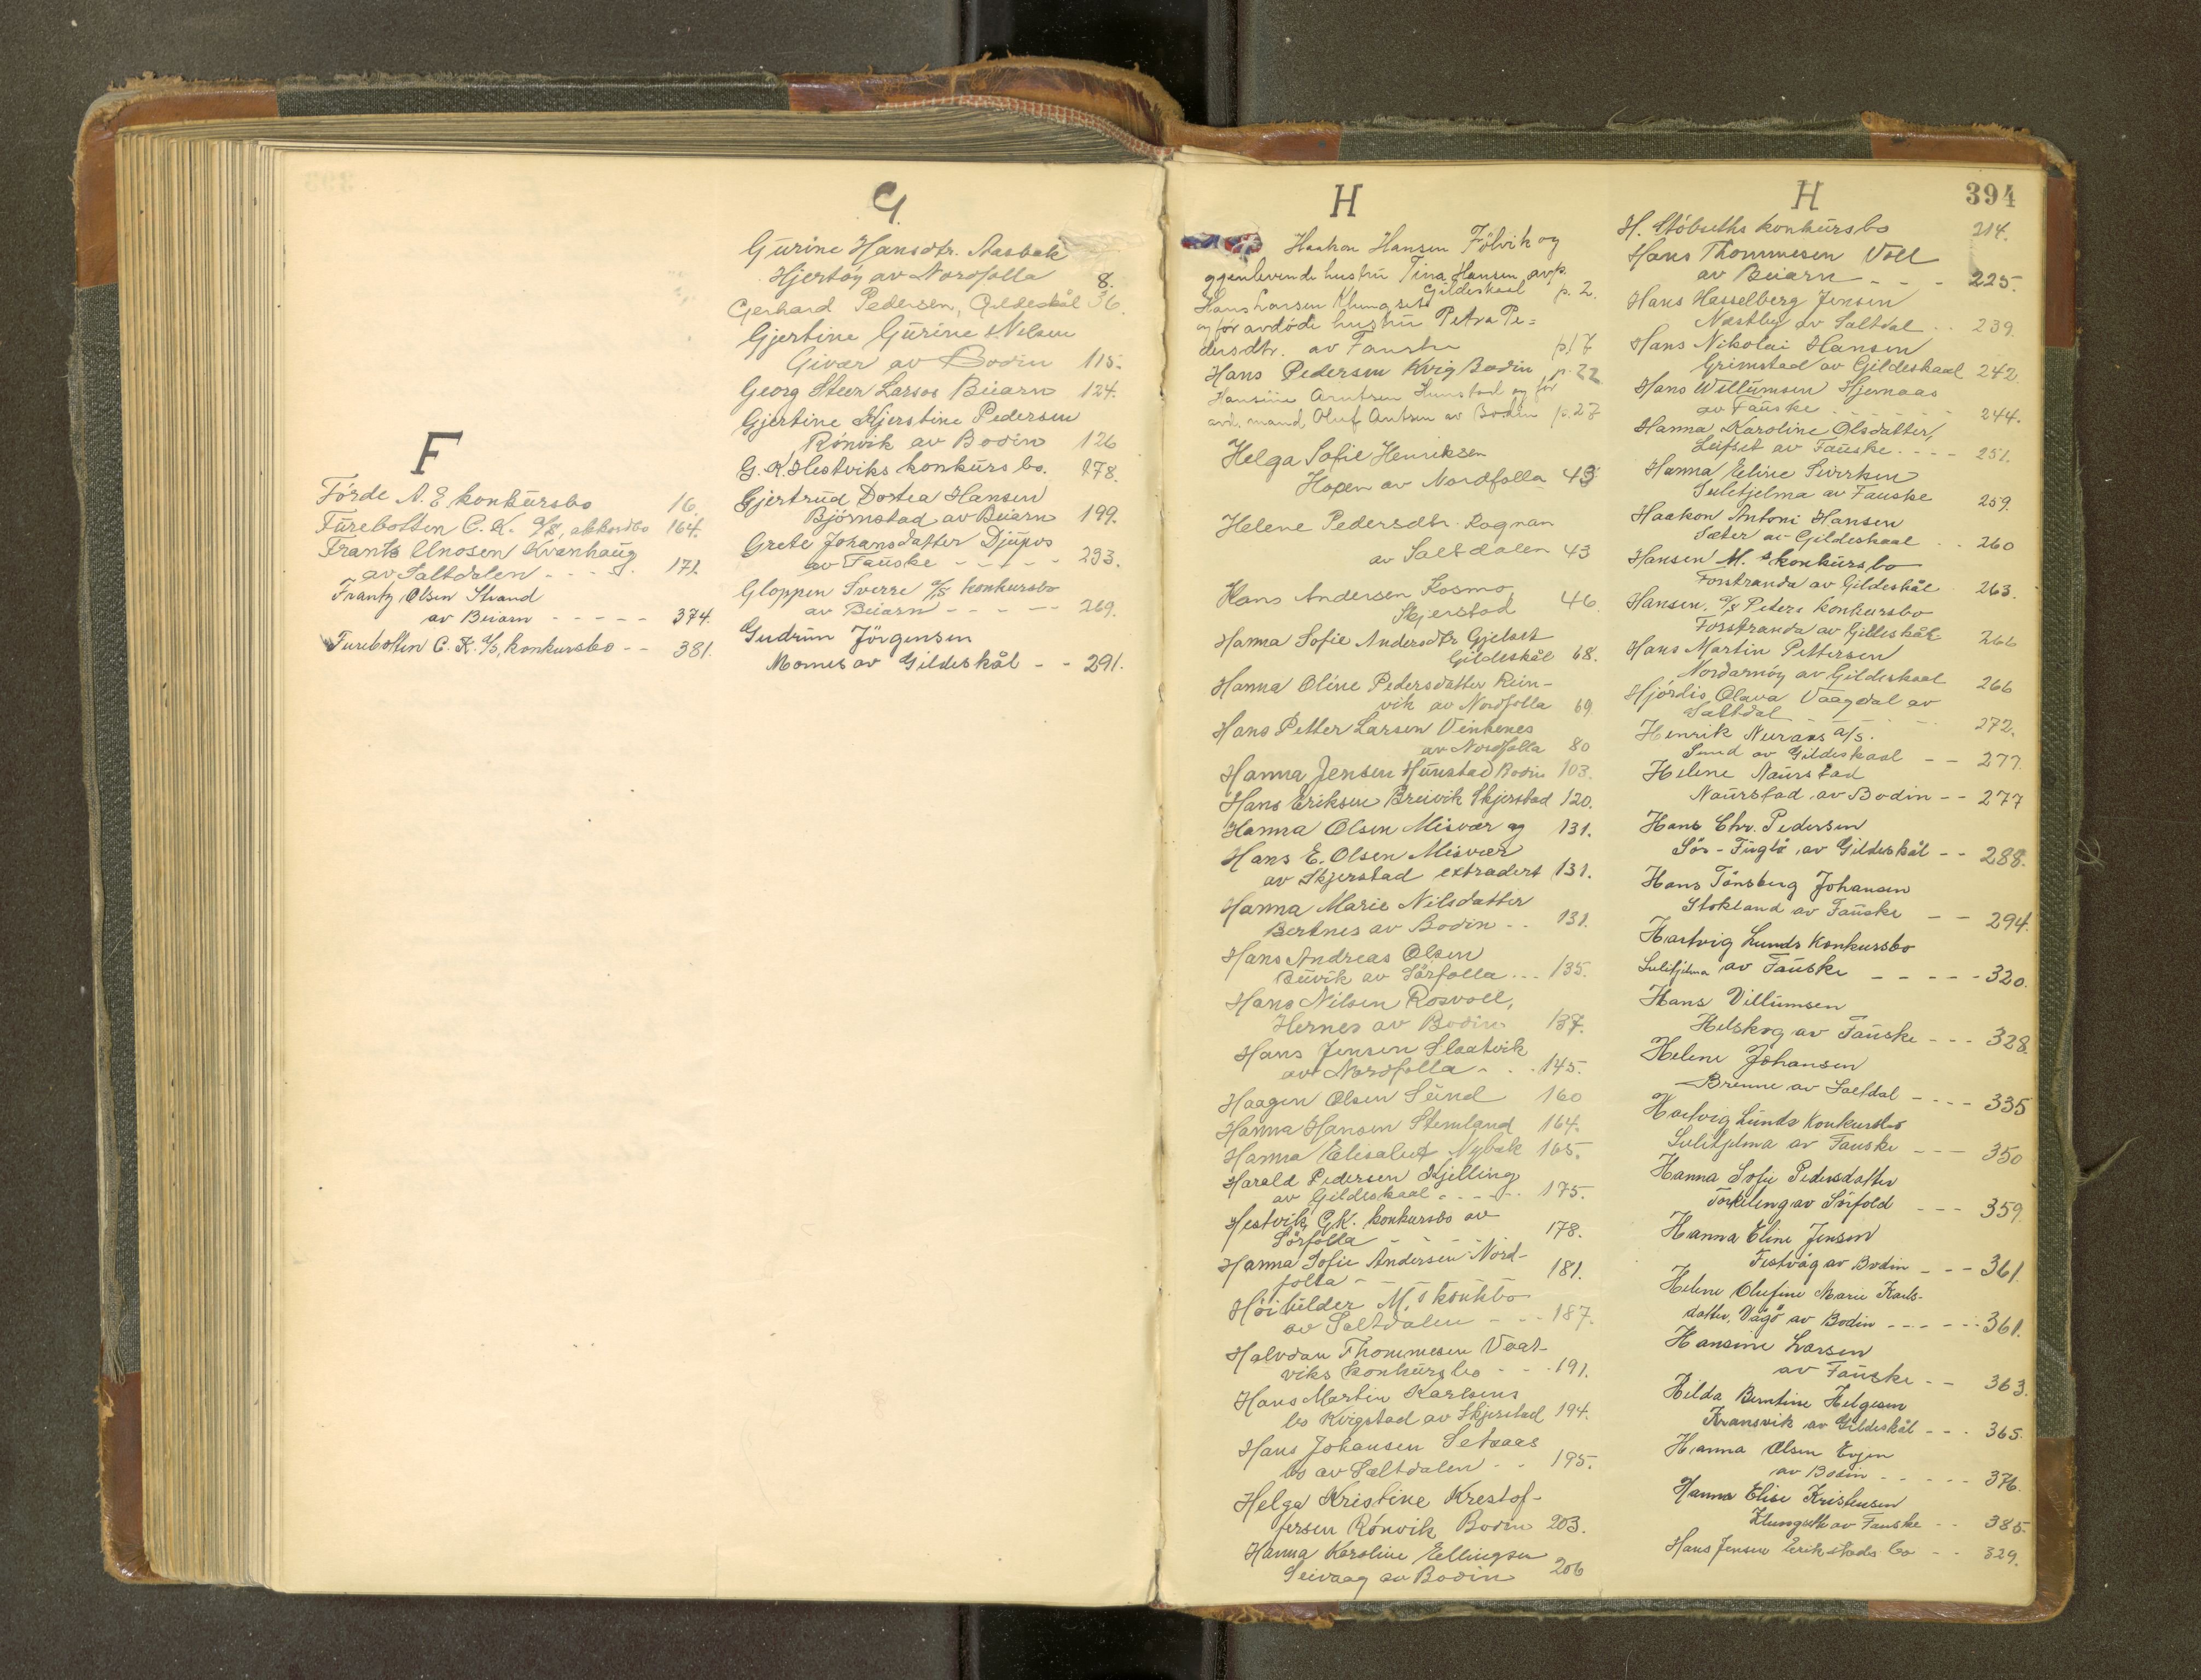 F
Förde A. E. konkursbo 16.
Furebotten C. K. A/S, akkordbo 164.
Frants Unosen Kvanhaug
av Saltdalen - - - 171.
Frantz Olsen Strand
av Beiarn - - - - - 374.
Furebotten C. K. A/S, konkursbo - - 381.
G.
Gurine Hansdtr. Aasbak
Hjertöy av Nordfolla 8.
Gerhard Pedersen, Gildeskål 36.
Gjertine Gurine Nilsen
Givær av Bodin 115.
Georg Steen Larsos Beiarn 124.
Gjertine Kjerstine Pedersen
Rönvik av Bodin 126
G. K. Hestviks konkurs bo. 178.
Gjertrud Dortea Hansen
Björnstad av Beiarn 199.
Grete Johansdatter Djupos
av Fauske - - - - - 233.
Gloppen Sverre A/S konkursbo
av Beiarn - - - - 269.
Gudrun Jörgensen
Mornes av Gildeskål - - 291.
H
Haakon Hansen Fölvik og
gjenlevende hustru Tina Hansen, av p.
Gildeskaal p. 2.
Hans Larsen Klungset
og för avdöde hustru Petra Pe=
dersdtr. av Fauske p. 17
Hans Pedersen Kvig Bodin p. 22
Hansine Arntsen Hunstad og för
avd. mand, Oluf Antsen av Bodin p. 27
Helga Sofie Henriksen
Hopen av Nordfolla 43
Helene Pedersdtr. Rognan
av Saltdalen 43
Hans Andersen Kosmo,
Skjerstad 46.
Hanna Sofie Andersdtr Gjelset
Gildeskål 68.
Hanna Oline Pedersdatter Rein-
vik av Nordfolla 69
Hans Petter Larsen Vinkenes
av Nordfolla 80
Hanna Jensen Hunstad Bodin 103.
Hans Eriksen Breivik Skjerstad 120.
Hanna Olsen Misvær og 131.
Hans E. Olsen Misvær
av Skjerstad extradert 131.
Hanna Marie Nilsdatter
Bertnes av Bodin - - 131.
Hans Andreas Olsen
Buvik av Sörfolla - - - 135.
Hans Nilsen Rosvoll,
Hernes av Bodin 137.
Hans Jensen Slaatvik
av Nordfolla - - - 145.
Haagen Olsen Sund 160
Hanna Hansen Stemland 164.
Hanna Elisabet Nybak 165.
Harald Pedersen Kjelling
av Gildeskaal - - - - - 175.
Hestvik, G.K. konkursbo av
Sörfolla - - - - - 178.
Hanna Sofie Andersen Nord-
folla - - - - - 181.
Höihilder M.s konkbo
av Saltdalen - - - 187.
Halvdan Thommesen Vaat-
viks konkursbo - - - 191.
Hans Martin Karlsens
bo Kvigstad av Skjerstad 194.
Hans Johansen Setsaas
bo av Saltdalen - - 195.
Helga Kristine Krestof-
fersen Rönvik Bodin 203.
Hanna Karoline Ellingsen
Seivaag av Bodin 206
H
394
H. Stöbseths konkursbo 214.
Hans Thommesen Voll
av Beiarn - - - 225.
Hans Hasselberg Jensen
Næstby av Saltdal - - 239.
Hans Nikolai Hansen
Grimstad av Gildeskaal 242.
Hans Willumsen Hjemaas
av Fauske - - - - - - 244.
Hanna Karoline Olsdatter,
Leifset av Fauske - - - - 251.
Hanna Eline
Sulitjelma av Fauske 259.
Haakon Antoni Hansen
Sæter av Gildeskaal - - 260
Hansen M. s konkursbo
Forstranda av Gildeskål 263.
Hansen, A/S Peters konkursbo
Forstranda av Gilleskål 266
Hans Martin Pettersen
Nordarnöy av Gildeskaal 266
Hjördis Olava Vaagdal av
Saltdal - - - - - 272.
Henrik Nuraas A/S.
Sund av Gildeskaal - - 277.
Helene Naurstad
Naurstad av Bodin - - 277
Hans Chr. Pedersen
Sör-Fuglö, av Gildeskål - - 288.
Hans Tönsberg Johansen
Stokland av Fauske - - 294.
Hartvig Lunds konkursbo
Sulitjelma av Fauske - - - - - 320.
Hans Villumsen
Helskog av Fauske - - - 328.
Helene Johansen
Brenne av Saltdal - - - - 335
Hartvig Lunds konkursbo
Sulitjelma av Fauske - - - 350
Hanna Sofie Pedersdatter
Torkeleng av Sörfold - - - 359.
Hanna Eline Jensen
Festvåg av Bodin - - - 361.
Helene Olufine Marie Karls-
datter, Vågö av Bodin - - - - - - 361.
Hansine Larsen
av Fauske - - 363.
Hilda Berntine Helgesen
Kransvik av Gildeskål - - - 365.
Hanna Olsen Evjen
av Bodin - - - - - 376.
Hanna Elise Kristensen
Klungseth av Fauske - - 385.
Hans Jensen Erikstads bo - - 329.